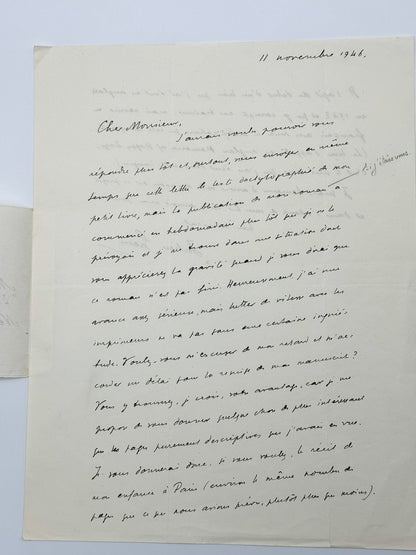 11 novembre 1946.
Cher Monsieur,
J'aurais voulu pouvoir vous
répondre plus tôt et, surtout, vous envoyer en même
temps que cette lettre le texte dactylographié de mon
petit livre, mais la publication de mon roman a
commencé en hebdomadaire plus tôt que je ne le
prévoyais et je me trouve dans une situation dont
vous apprécierez la gravité quand je vous dirai que
ce roman n'est pas fini. Heureusement j'ai une
avance assez sérieuse, mais lutter de vitesse avec les
imprimeurs ne va pas sans une certaine inquié-
tude. Voulez-vous m'excuser de mon retard et m'ac-
corder un délai pour la remise de mon manuscrit?
Vous y trouverez, je crois, votre avantage, car je me
propose de vous donner quelque chose de plus intéressant
que les pages purement descriptives que j'avais en vue.
Je vous donnerai donc, si vous voulez, le récit de
mon enfance à Paris (environ le même nombre de
pages que ce que nous avions prévu, plutôt plus que moins).